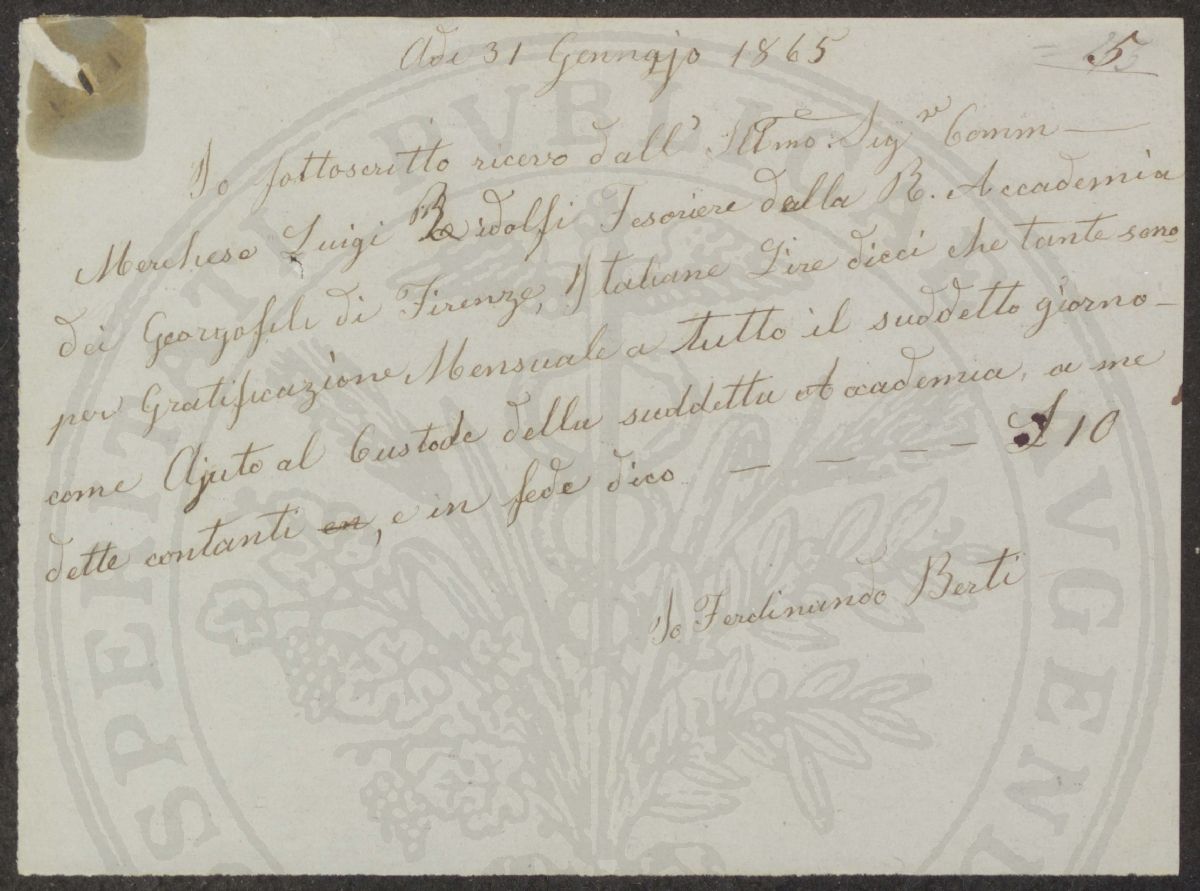 Adi 31 Gennajo 1865
5
Io sottoscritto ricevo dall' Illmo: Sigre Comm —
Merchese Luigi Ridolfi Tesoriere della R. Accademia
dei Georgofili di Firenze, Italiane Lire dieci che tante sono
per Gratificazione Mensuale a tutto il suddetto giorno —
come Ajuto al Custode della suddetta Accademia, a me
dette contanti en, e in fede dico — — — — £ 10
Io Ferdinando Berti
PROSPERITATI PVBLICAE AVGENDAE